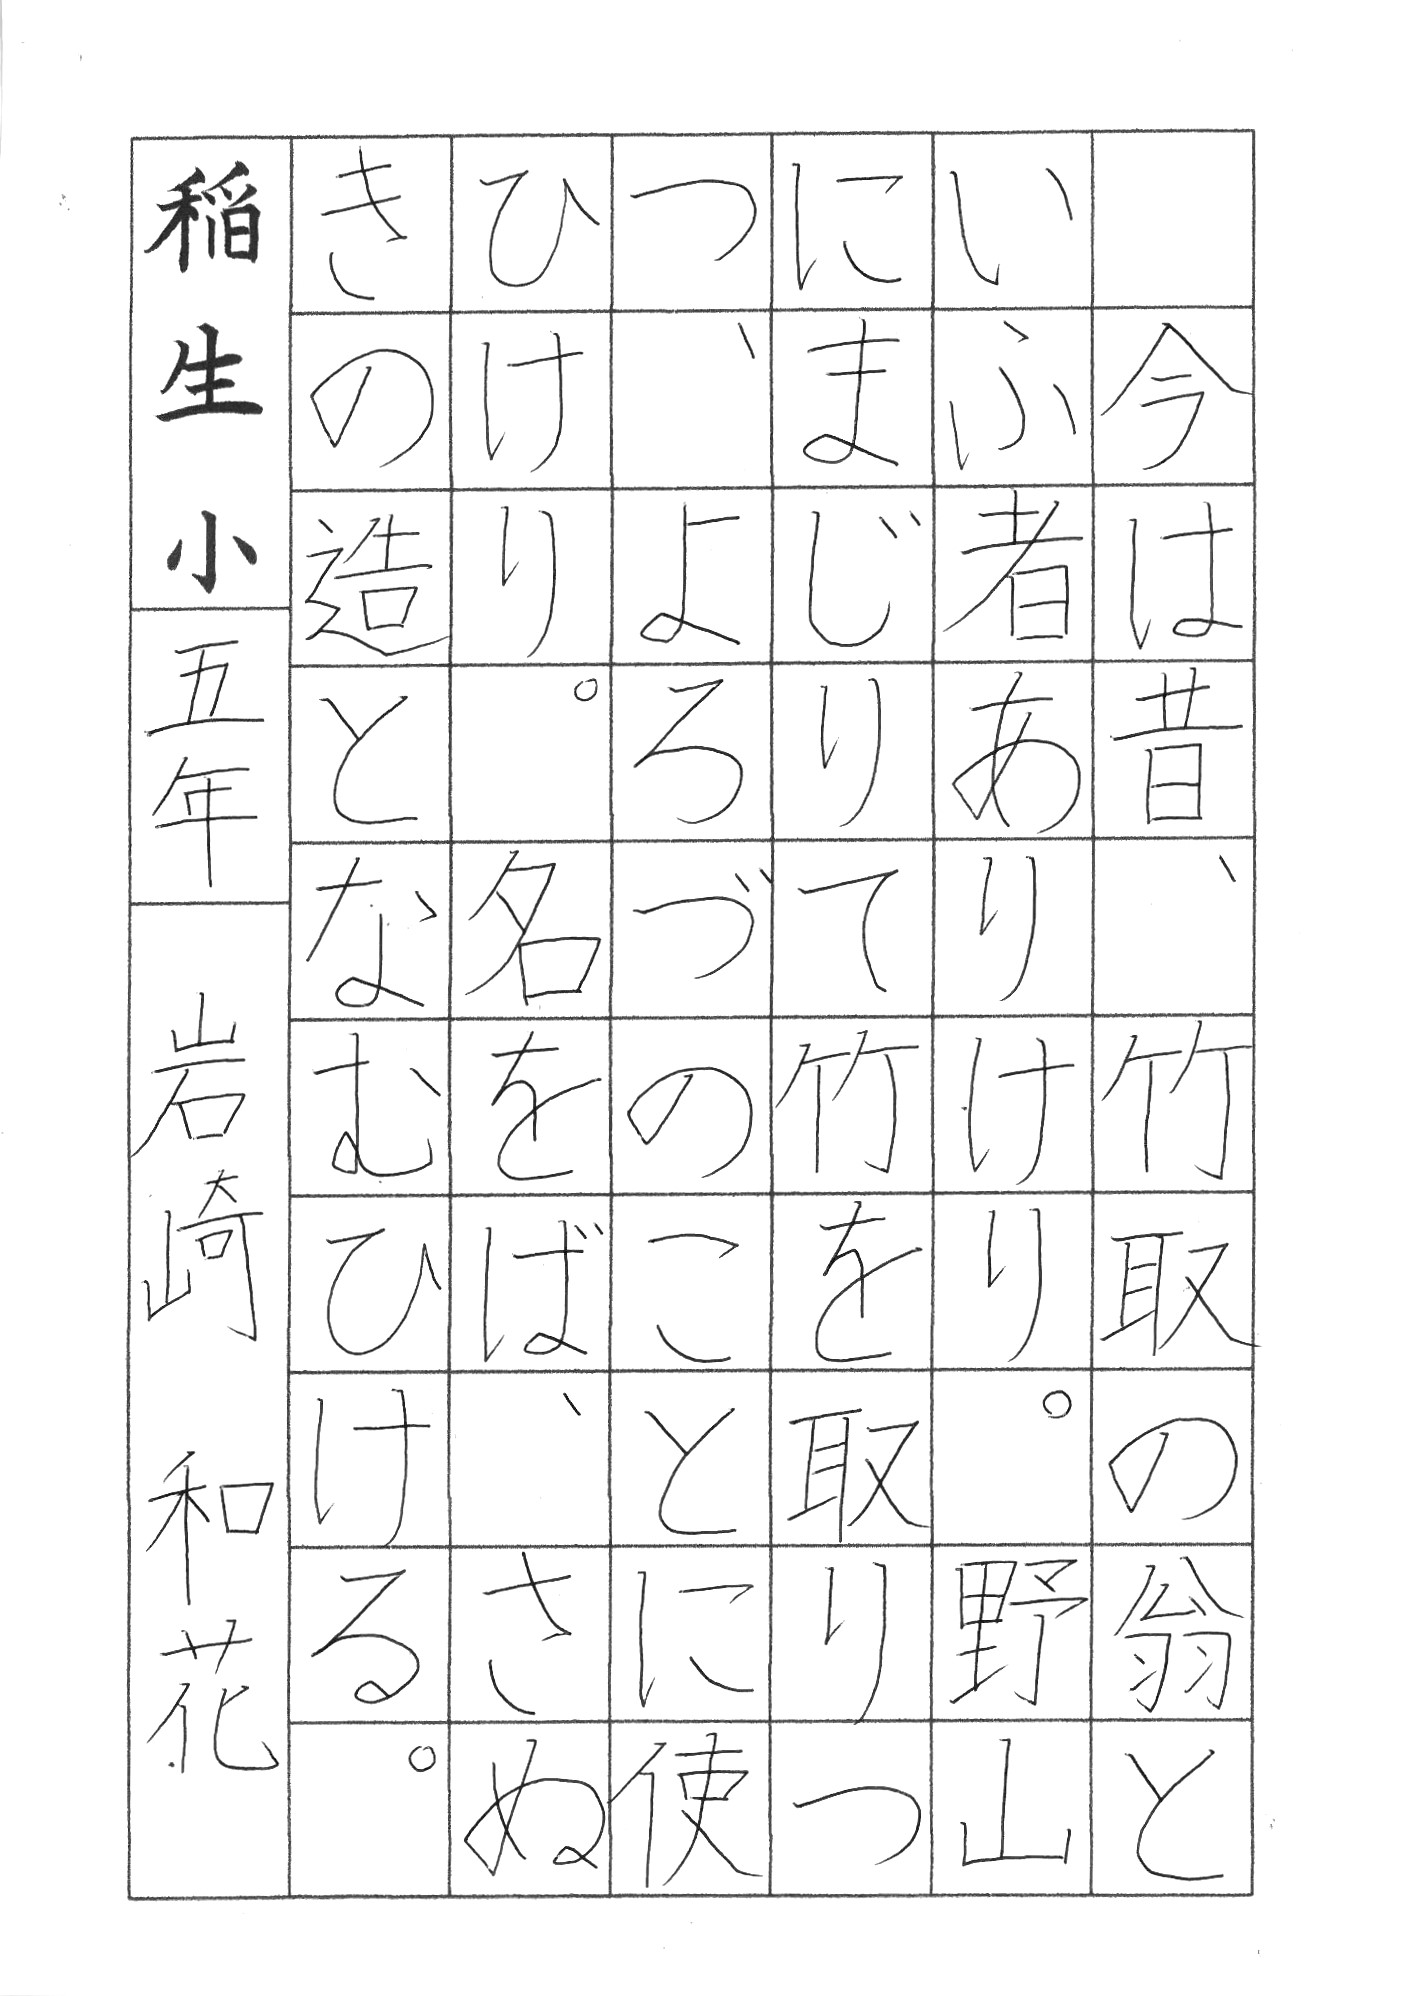 今は昔、竹取の翁と
いふ者ありけり。野山
にまじりて竹を取りつ
つ、よろづのことに使
ひけり。名をば、さぬ
きの造となむひける。
稲生小五年　岩崎　和花